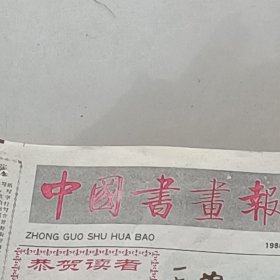 中國書畫報
ZHONG GUO SHU HUA BAO
198
恭贺读者